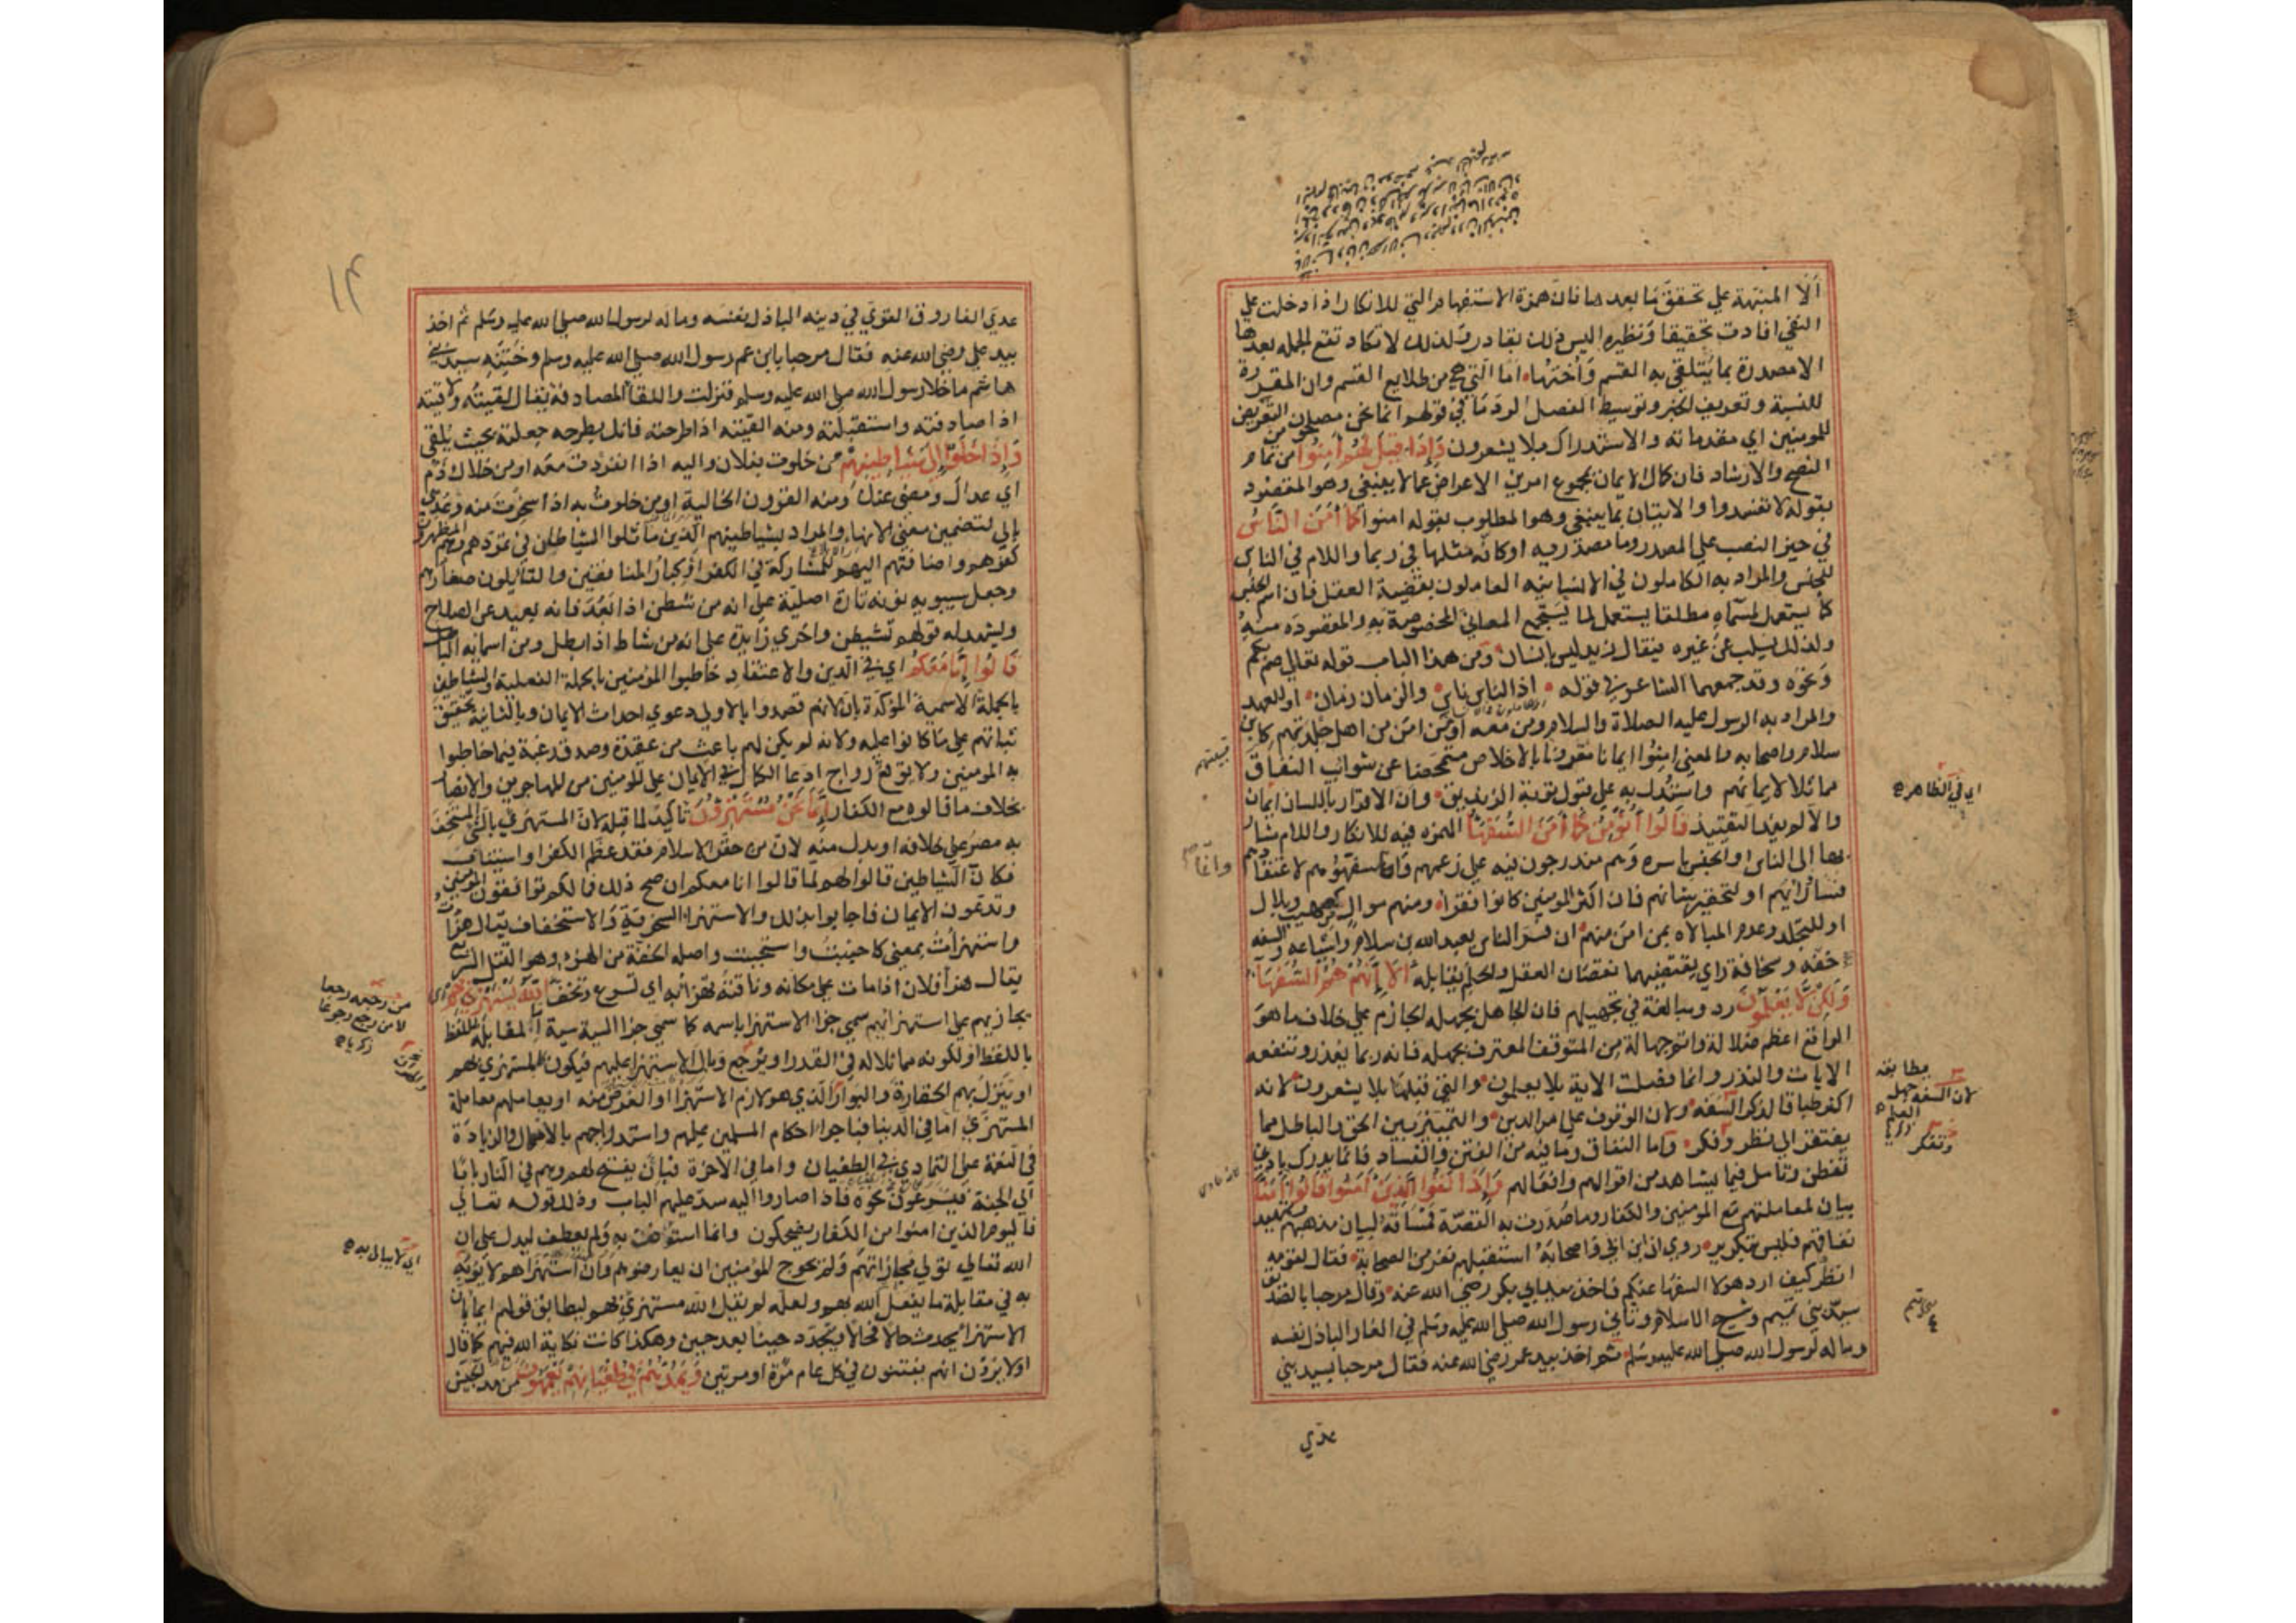 ألا المنبهة علي تحقق ما بعدها فان همزة الاستفهام التي للانكار اذا دخلت علي
النفي افادت تحقيقا ونظيره اليس ذلك بقادر ولذلك لا تكاد تقع الجملة بعدها
الا مصدرة بما يتلقى به القسم وأختها اما التي هي من طلايع القسم وان المقررة
للنسبة وتعريف الخبر وتوسيط الفصل لرد ما في قولهم انما نحن مصلحون من التعريض
للمومنين اي مقدماته والاستدراك بلا يشعرون وَإِذَا قِيلَ لَهُمْ أَمِنُوا من تمام
النصح والارشاد فان كمال الايمان بمجموع امرين الاعراض عما لا ينبغي وهو المقصود
بقوله لا تفسدوا والاتيان بما ينبغي وهو المطلوب بقوله امنوا كَمَا أَمَنَ النَّاسُ
في حيز النصب علي المصدر وما مصدريه او كافة مثلها في ربما واللام في الناس
للجنس والمراد به الكاملون في الانسانيه العاملون بقضية العقل فان اسم الجنس
كما يستعمل لمسماه مطلقا يستعمل لما يستجمع المعاني المخصوصة به والمقصودة منه
ولذلك يسلب عن غيره فيقال زيد ليس بإنسان ومن هذا الباب قوله تعالي صم بكم
ونحوه وقد جمعهما الشاعر في قوله اذ الناس ناس والزمان زمان او للعهد
والمراد به الرسول عليه الصلاة والسلام ومن معه او من امن من اهل جلدتهم كابن
سلام واصحابه والمعني امنوا ايمانا مقرونا بالاخلاص متمحضا عن شوايب النفاق
مماثلا لايمانهم واستدل به علي قبول توبة الزنديق وان الاقرار باللسان ايمان
والا لم يفد التقييد قَالُوا أَنُؤْمِنُ كَمَا أَمَنَ السُّفَهَاءُ الهمزه فيه للانكار واللام مشار
بها الى الناس او الجنس باسره وهم مندرجون فيه علي زعمهم وانما سفهوهم لاعتقادهم
فساد رأيهم او لتحقير شانهم فان اكثر المومنين كانوا فقراء ومنهم موالي كصهيب وبلال
او للتجلد وعدم المبالاه بمن امن منهم ان فسر الناس بعبد الله بن سلام واشياعه والسفه
خفة وسخافة راي يقتضيهما نقصان العقل والحلم يقابله أَلَا إِنَّهُمْ هُمُ السُّفَهَاءُ
وَلَكِنْ لَا يَعْلَمُونَ رد ومبالغة في تجهيلهم فان الجاهل بجهله الجازم علي خلاف ما هو
الواقع اعظم ضلالة واتم جهالة من المتوقف المعترف بجهله فانه ربما يعذر وتنفعه
الايات والنذر وانما فصلت الاية بلا يعلمون والتي قبلها بلا يشعرون لانه
اكثر طباقا لذكر السفه ولان الوقوف علي امر الدين والتمييز بين الحق والباطل مما
يفتقر الى نظر وفكر واما النفاق وما فيه من الفتن والفساد فانما يدرك بادني
تفطن وتامل فيما يشاهد من اقوالهم وافعالهم وَإِذَا لَقُوا الَّذِينَ أَمَنُوا قَالُوا أَمَنَّا
بيان لمعاملتهم مع المومنين والكفار وما صدرت به القصة فمساقه لبيان مذهبهم وتمهيد
نفاقهم فليس بتكرير روي ان ابن ابي واصحابه استقبلهم نفر من الصحابة فقال لقومه
انظر كيف ارد هولا السفها عنكم فاخذ بيد ابي بكر رضي الله عنه وقال مرحبا بالصديق
سيد بني تميم وشيخ الاسلام وثاني رسول الله صلي الله عليه وسلم في الغار الباذل نفسه
وماله لرسول الله صلي الله عليه وسلم ثم اخذ بيد عمر رضي الله عنه فقال مرحبا بسيد بني
عدي
قبيلتهم
اي في الظاهر
مطابقه
لان السفه جهل
العلم
زكريا
وتفكر
١٣
عدي الفاروق القوي في دينه الباذل نفسه وماله لرسول الله صلي الله عليه وسلم ثم اخذ
بيد علي رضي الله عنه فقال مرحبا يا ابن عم رسول الله صلي الله عليه وسلم وختنه سيد بني
هاشم ما خلا رسول الله صلي الله عليه وسلم فنزلت واللقا المصادفة يقال لقيته ولاقيته
اذا صادفته واستقبلته ومنه القيته اذا طرحته فانك بطرحه جعلته بحيث يلقى
وَإِذَا خَلَوْا إِلَى شَيَاطِينِهِمْ من خلوت بفلان واليه اذا انفردت معه او من خلاك ذم
اي عداك ومضى عنك ومنه القرون الخالية او من خلوت به اذا سخرت منه وعدي
بإلى لتضمين معنى الانهاء والمراد بشياطينهم الذين ماثلوا الشيطان في تمردهم وهم المظهرون
كفرهم واضافتهم اليهم للمشاركة في الكفر او كبار المنافقين والقايلون صغارهم
وجعل سيبويه نونه تارة اصلية علي انه من شطن اذا بعد فانه بعيد عن الصلاح
ويشهد له قولهم تشيطن واخري زايدة علي انه من شاط اذا بطل ومن اسمايه الباطل
قَالُوا إِنَّا مَعَكُمْ اي في الدين والاعتقاد خاطبوا المؤمنين بالجملة الفعلية والشياطين
بالجملة الاسمية المؤكدة بإن لانهم قصدوا بالاولى دعوي احداث الايمان وبالثانية تحقيق
ثباتهم علي ما كانوا عليه ولانه لم يكن لهم باعث من عقيدة وصدق رغبة فيما خاطبوا
به المومنين ولا توقع رواج ادعا الكمال في الايمان علي المومنين من المهاجرين والانصار
بخلاف ما قالوه مع الكفار إِنَّمَا نَحْنُ مُسْتَهْزِؤُنَ تاكيد لما قبله لان المستهزئ بالشي المستخف
به مصر علي خلافه او بدل منه لان من حقر الاسلام فقد عظم الكفر او استئناف
فكان الشياطين قالوا لهم لما قالوا انا معكم ان صح ذلك فما لكم توافقون المومنين
وتدعون الايمان فاجابوا بذلك والاستهزاء السخرية والاستخفاف يقال هزأت
واستهزأت بمعني كاجبت واستجبت واصله الخفة من الهزء وهو القتل السريع
يقال هزأ فلان اذا مات علي مكانه وناقته تهزأ به اي تسرع وتخف اللَّهُ يَسْتَهْزِئُ بِهِمْ
يجازيهم علي استهزائهم سمي جزا الاستهزا باسمه كما سمي جزا السيئة سيئة اما لمقابلة اللفظ
باللفظ او لكونه مماثلا له في القدر او يرجع وبال الاستهزا عليهم فيكون كالمستهزئ بهم
او ينزل بهم الحقارة والهوان الذي هو لازم الاستهزا او الغرض منه او يعاملهم معاملة
المستهزئ اما في الدنيا فباجراء احكام المسلمين عليهم واستدراجهم بالامهال والزيادة
في النعمة علي التمادي في الطغيان واما في الاخرة فبان يفتح لهم وهم في النار بابا
الى الجنة فيسرعون نحوه فاذا صاروا اليه سد عليهم الباب وذلك قوله تعالي
فاليوم الذين امنوا من الكفار يضحكون وانما استؤنف به ولم يعطف ليدل علي ان
الله تعالي تولي مجازاتهم ولم يحوج المؤمنين ان يعارضوهم وان استهزاهم لا يؤبه
به في مقابلة ما يفعل الله بهم ولعله لم يقل الله مستهزئ بهم ليطابق قولهم ايماء بان
الاستهزا يحدث حالا فحالا ويتجدد حينا بعد حين وهكذا كانت نكاية الله فيهم كما قال
اولا يرون انهم يفتنون في كل عام مرة او مرتين وَيَمُدُّهُمْ فِي طُغْيَانِهِمْ يَعْمَهُونَ من مد الجيش
من رجعه رجعا
لا من رجع رجوعا
زكريا
اي لا يبالى به